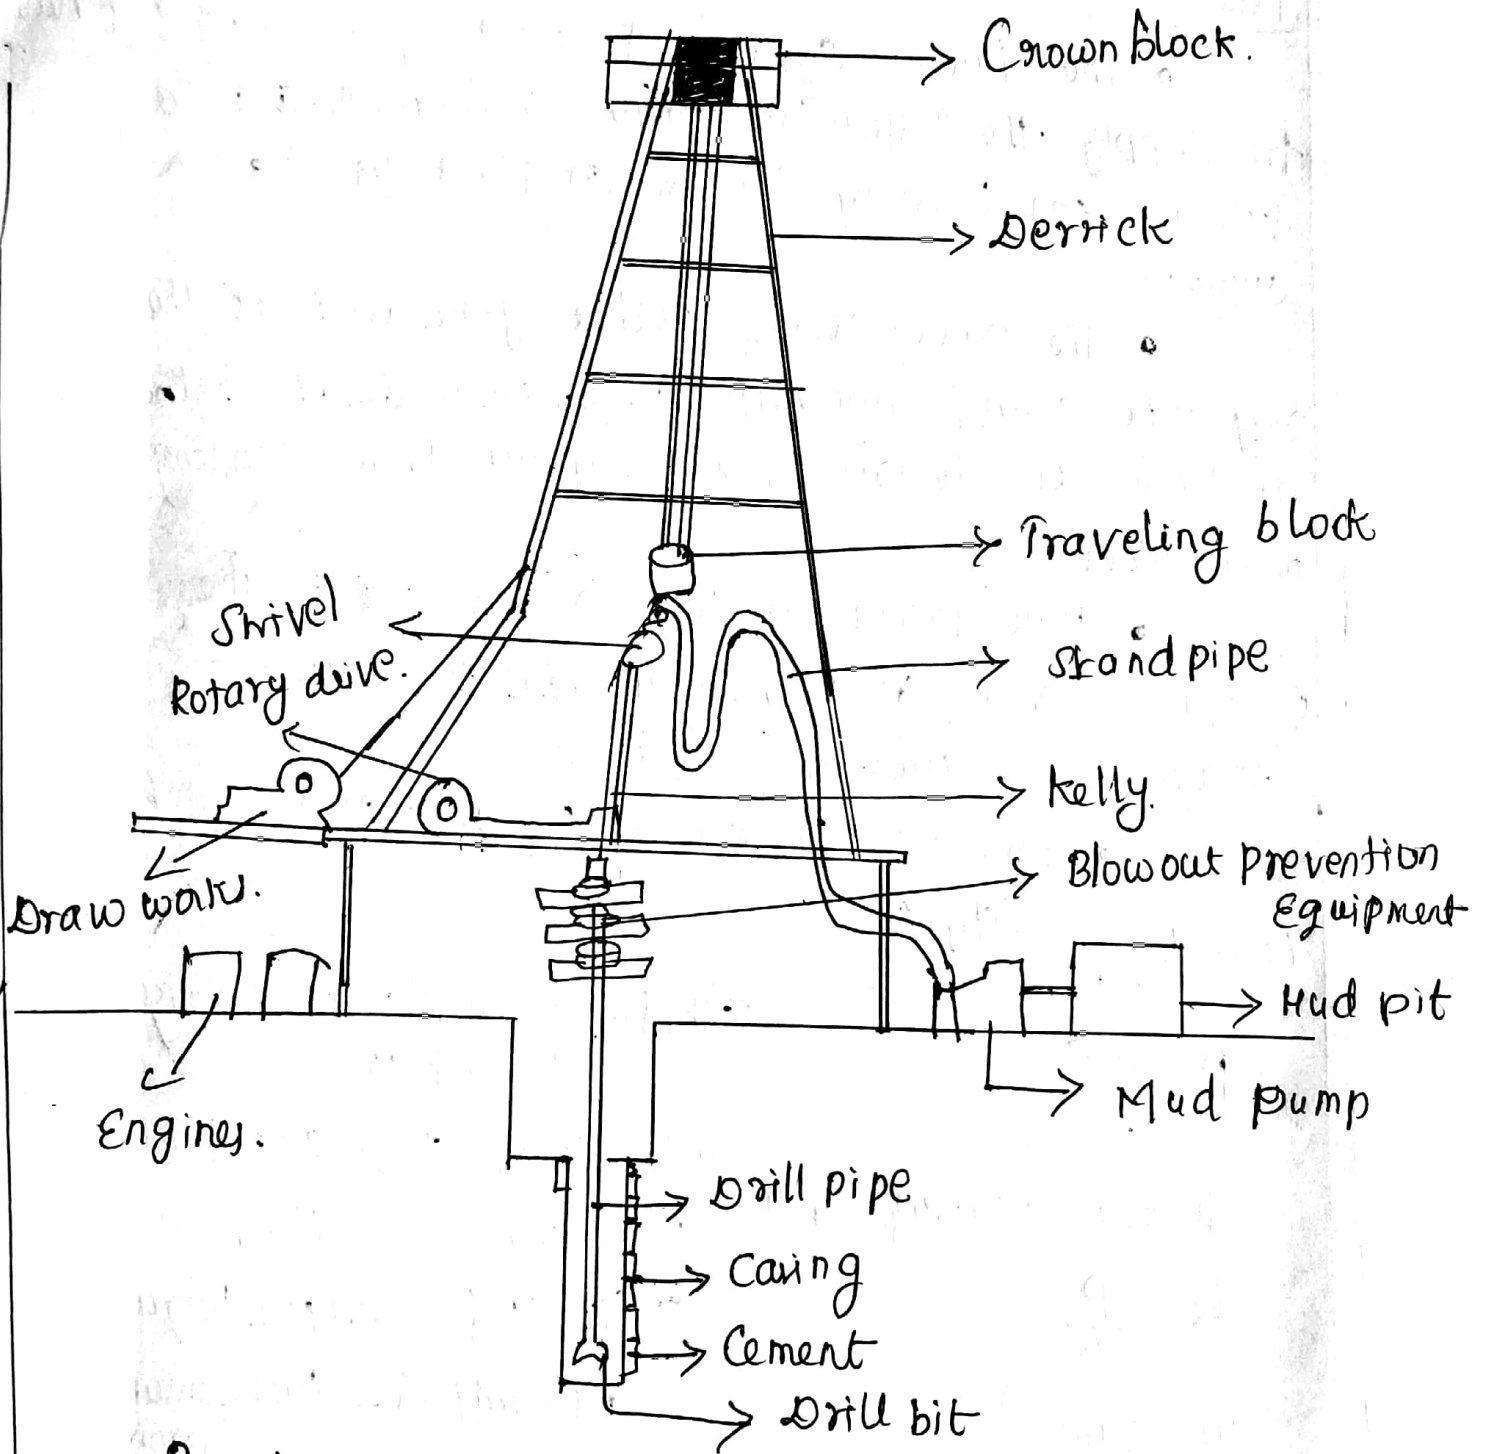 Crown block.
Derrick
Traveling block
Swivel
Rotary drive.
Standpipe
Kelly.
Blowout prevention
Equipment
Draw works.
Mud pit
Mud pump
Engines.
Drill pipe
Casing
Cement
Drill bit